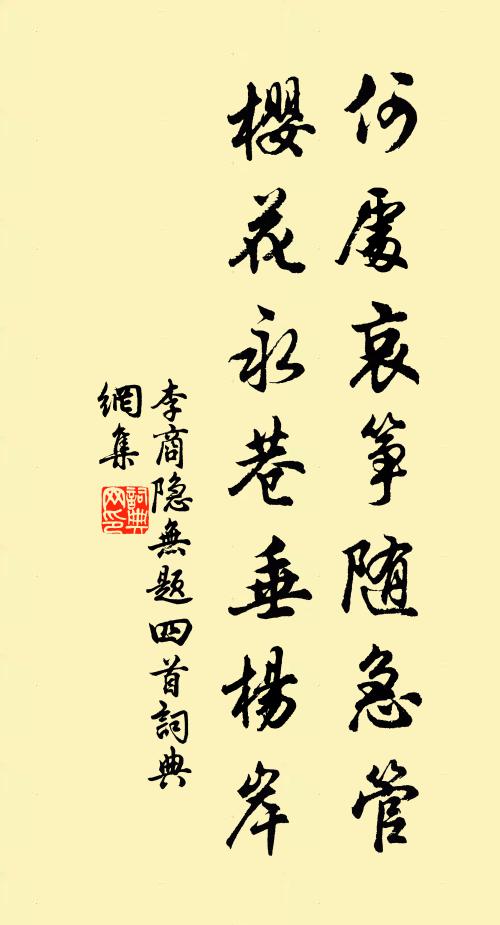 何處哀筝随急管
櫻花永巷垂楊岸
李商隐無题四首詞典
網集
詞典
网印